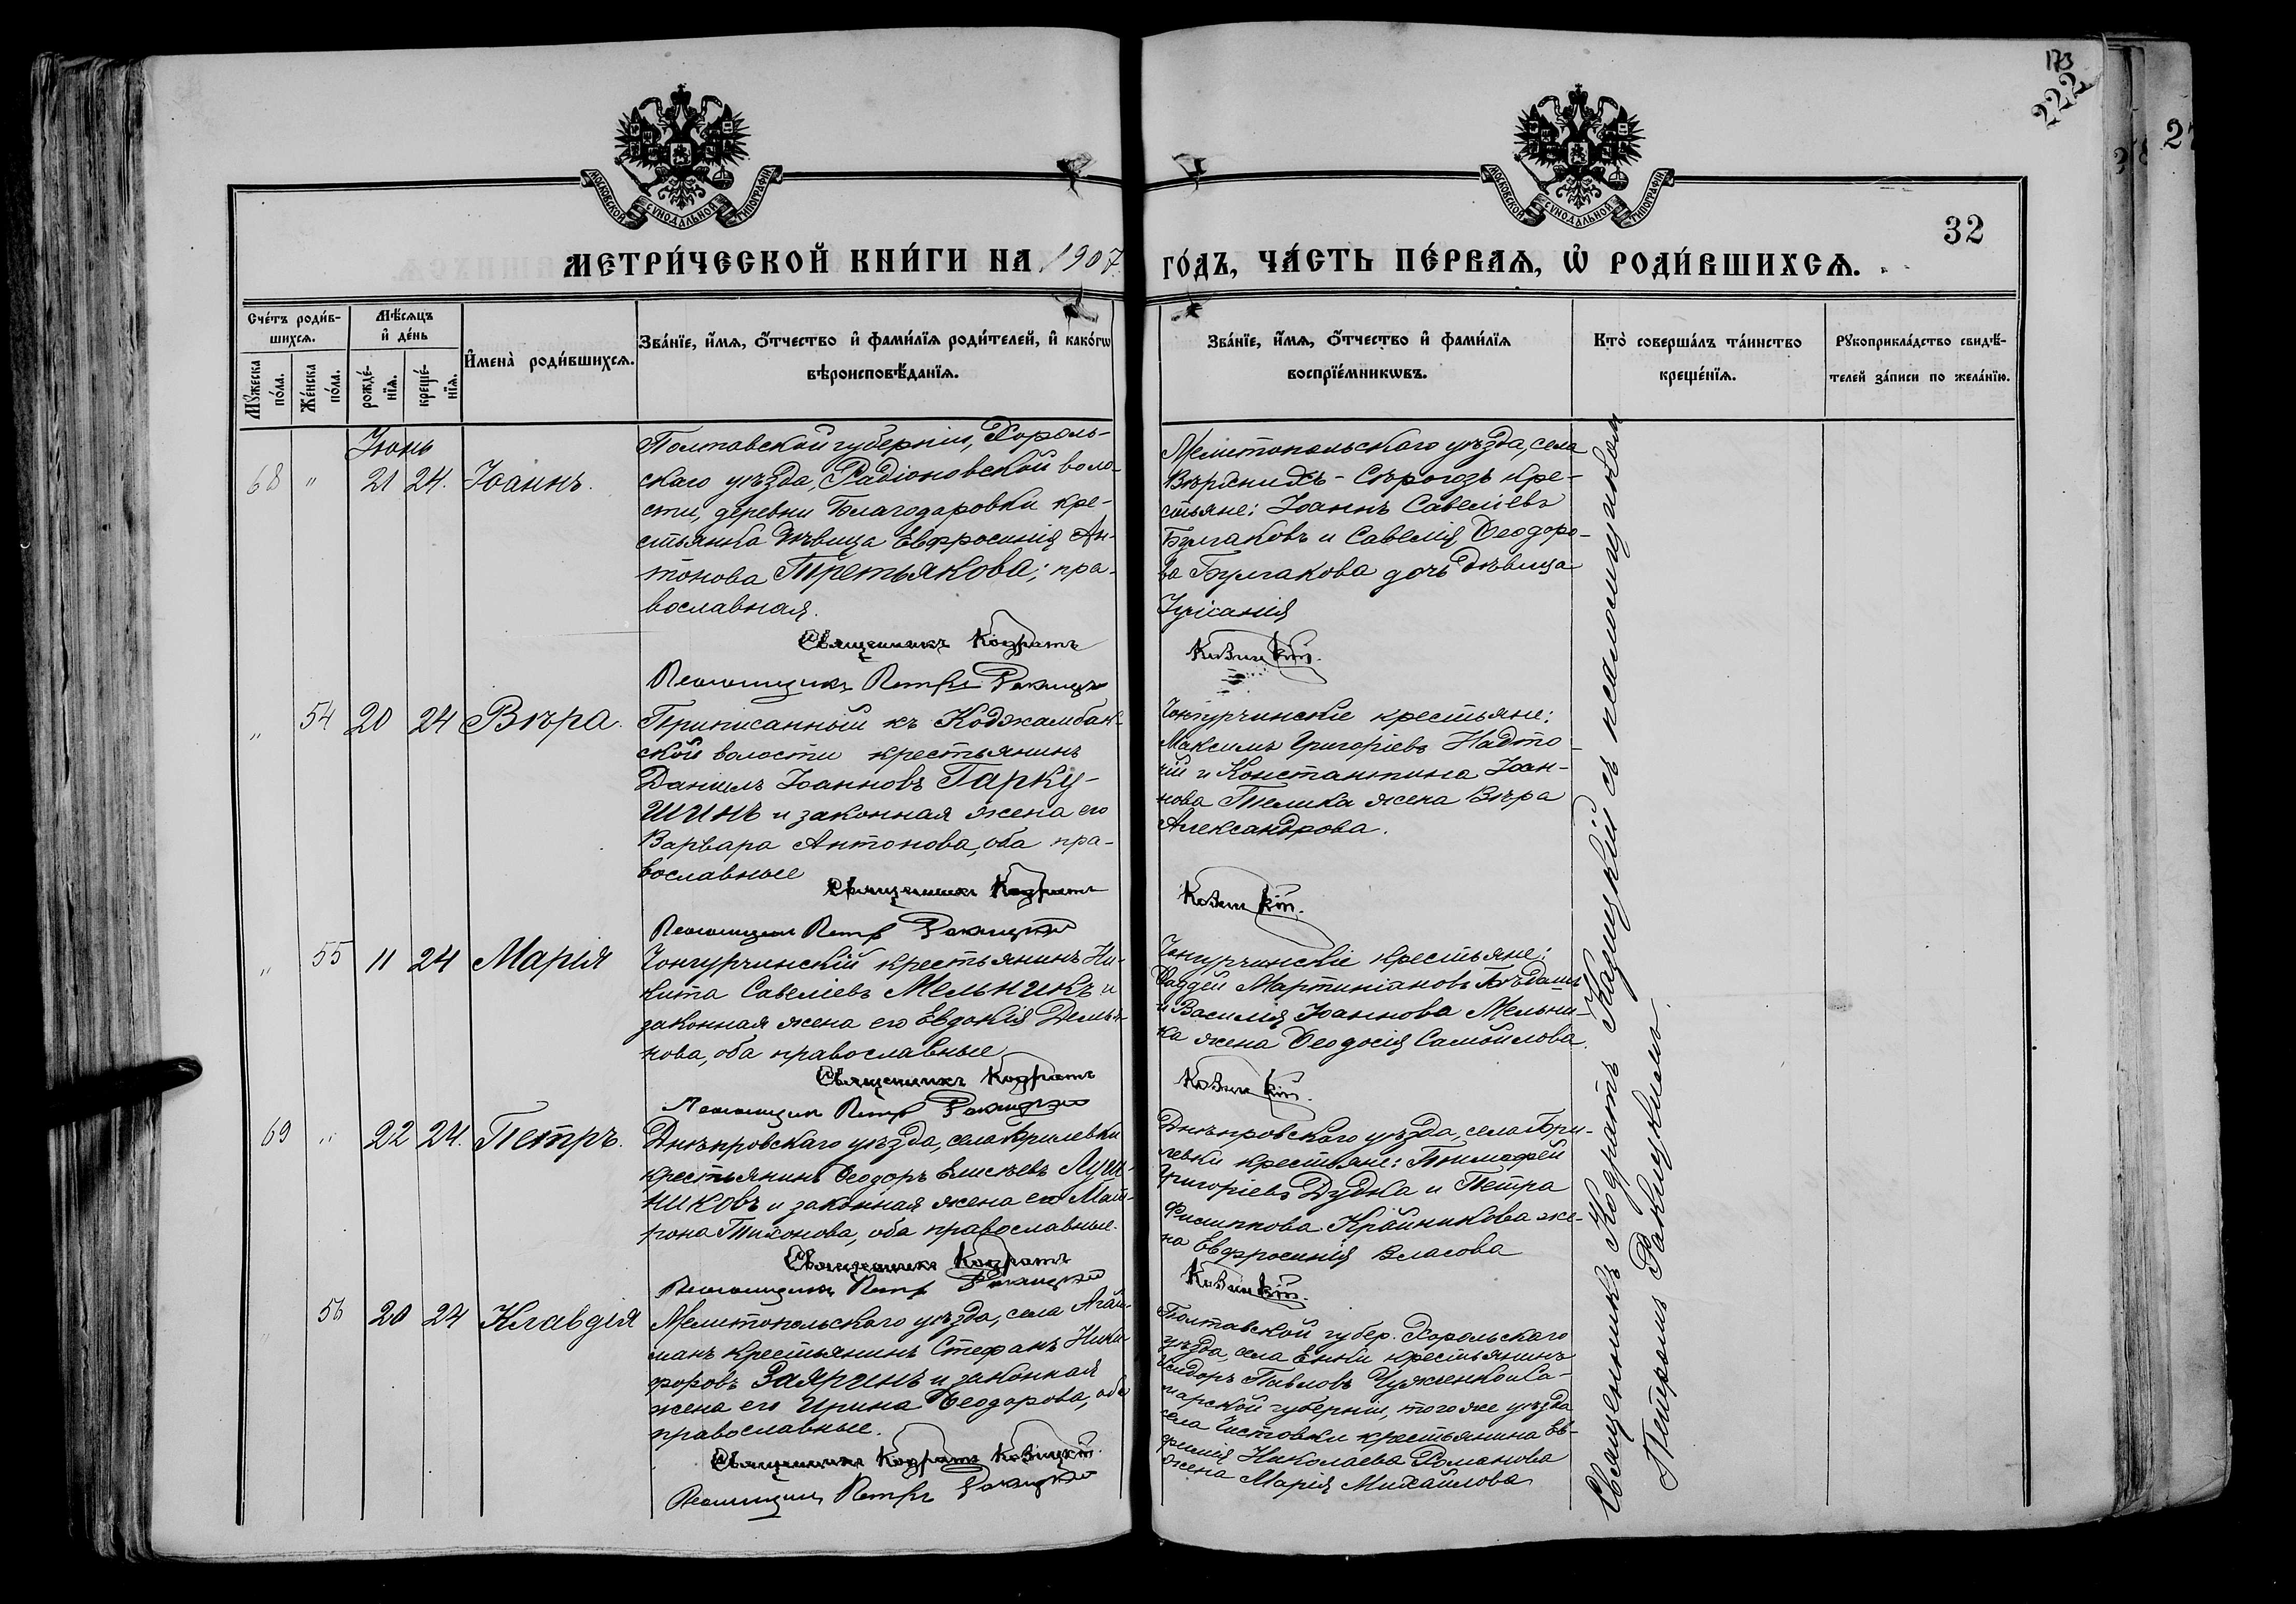 173
222
МОСКОВСКОЙ СУНОДАЛЬНОЙ ТИПОГРАФІИ
МОСКОВСКОЙ СУНОДАЛЬНОЙ ТИПОГРАФІИ
32
МЕТРИ́ЧЕСКОЙ КНИ́ГИ НА 1907 ГО́ДЪ, ЧА́СТЬ ПЕ́РВАѦ, Ѡ҆ РОДИ́ВШИХСѦ.
Сче́тъ роди́в-
шихсѧ.
Мѣ́сѧцъ
и҆ де́нь
Мꙋ́жеска по́ла.
Же́нска по́ла.
рожде́-
нїѧ.
креще́-
нїѧ.
И҆мена̀ роди́вшихсѧ.
Зва́нїе, и҆́мѧ, ѻ҆́тчество и҆ фами́лїѧ роди́телей, и҆ како́гѡ
вѣроисповѣ́данїѧ.
Зва́нїе, и҆́мѧ, ѻ҆́тчество и҆ фами́лїѧ
воспрїе́мникѡвъ.
Кто̀ соверша́лъ та́инство
креще́нїѧ.
Рꙋкоприкла́дство свидѣ́-
телей за́писи по жела́нїю.
Іюнь
68 " 21 24. Іоаннъ.
Полтавской губерніи, Хороль-
скаго уѣзда, Радіоновской воло-
сти, деревни Благодаровки кре-
стьянка дѣвица Евфросинія Ан-
тонова Третьякова; пра-
вославная.
Священникъ Кодратъ
Псаломщикъ Петръ Ракицкій
Мелитопольскаго уѣзда, села
Верхнихъ-Сѣрогозъ кре-
стьяне: Іоаннъ Савеліевъ
Булгаковъ и Савелія Ѳеодоро-
ва Булгакова дочь дѣвица
Іуліанія
Козицкій.
" 54 20 24 Вѣра.
Приписанный къ Коджамбак-
ской волости крестьянинъ
Даніилъ Іоанновъ Гарку-
шинъ и законная жена его
Варвара Антонова, оба пра-
вославные
Священникъ Кодратъ
Псаломщикъ Петръ Ракицкій
Чонгурчинскіе крестьяне:
Максимъ Григоріевъ Надто-
чій и Константина Іоан-
нова Телика жена Вѣра
Александрова.
Козицкій.
" 55 11 24 Марія
Чонгурчинскій крестьянинъ Ни-
кита Савеліевъ Мельникъ и
законная жена его Евдокія Демья-
нова, оба православные
Священникъ Кодратъ
Псаломщикъ Петръ Ракицкій
Чонгурчинскіе крестьяне:
Ѳаддей Мартиніановъ
и Василія Іоаннова Мельни-
ка жена Ѳеодосія Самойлова.
Козицкій.
69 " 22 24. Петръ.
Днѣпровскаго уѣзда, села Брилевки
крестьянинъ Ѳеодоръ Елисѣевъ
и законная жена его Мат-
рона Тихонова, оба православные.
Священникъ Кодратъ
Псаломщикъ Петръ Ракицкій
Днѣпровскаго уѣзда, села Бри-
левки крестьяне: Тимофей
Григоріевъ Дудка и Петра
Филиппова Крайникова же-
на Евфросинія Власова
Козицкій.
56 20 24 Клавдія
Мелитопольскаго уѣзда, села Агай-
манъ крестьянинъ Стефанъ Ники-
форовъ Заяринъ и законная
жена его Ирина Ѳеодорова, оба
православные.
Священникъ Кодратъ Козицкій.
Псаломщикъ Петръ Ракицкій
Полтавской губер. Хорольскаго
уѣзда, села Енки крестьянинъ
Исидоръ Павловъ
губерніи, того же уѣзда
села Чистовки крестьянина Ев-
фимія Николаева Романова
жена Марія Михайлова
Священникъ Кодратъ Козицкій съ псаломщикомъ
Петромъ Ракицкимъ.